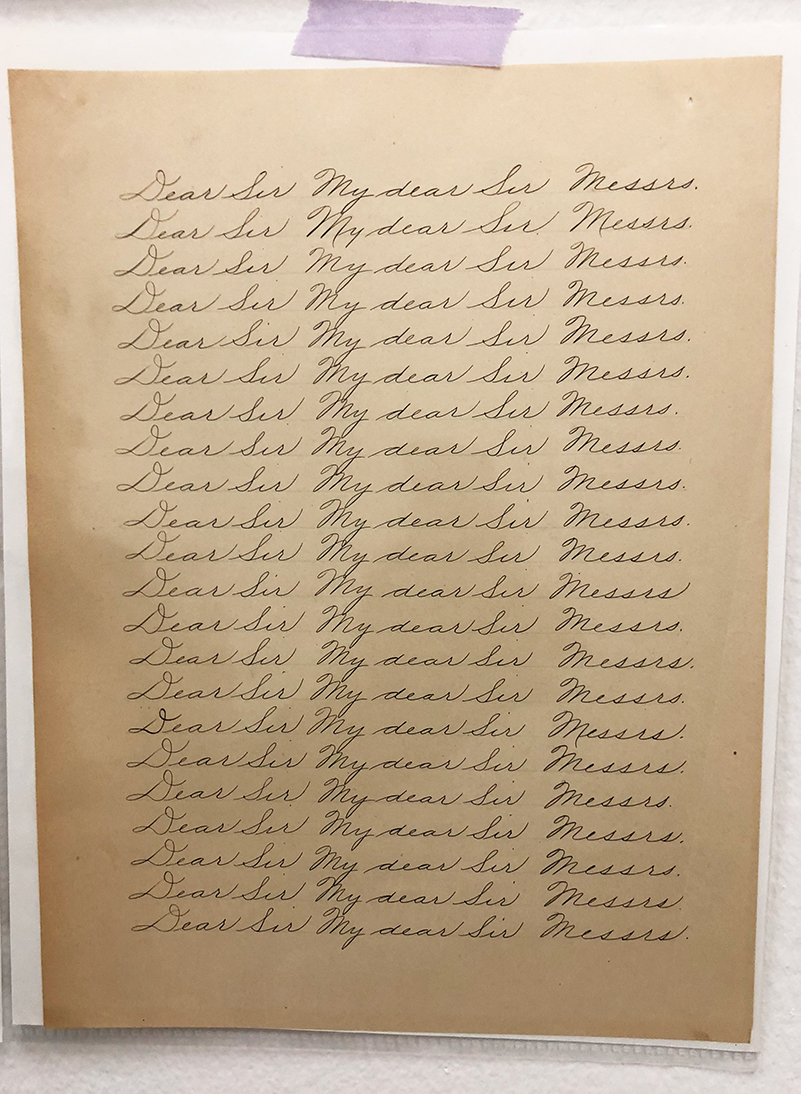 Dear Sir My dear Sir Messrs.
Dear Sir My dear Sir Messrs.
Dear Sir My dear Sir Messrs.
Dear Sir My dear Sir Messrs.
Dear Sir My dear Sir Messrs.
Dear Sir My dear Sir Messrs.
Dear Sir My dear Sir Messrs.
Dear Sir My dear Sir Messrs.
Dear Sir My dear Sir Messrs.
Dear Sir My dear Sir Messrs.
Dear Sir My dear Sir Messrs.
Dear Sir My dear Sir Messrs
Dear Sir My dear Sir Messrs.
Dear Sir My dear Sir Messrs.
Dear Sir My dear Sir Messrs.
Dear Sir My dear Sir Messrs.
Dear Sir My dear Sir Messrs.
Dear Sir My dear Sir Messrs.
Dear Sir My dear Sir Messrs.
Dear Sir My dear Sir Messrs.
Dear Sir My dear Sir Messrs.
Dear Sir My dear Sir Messrs.